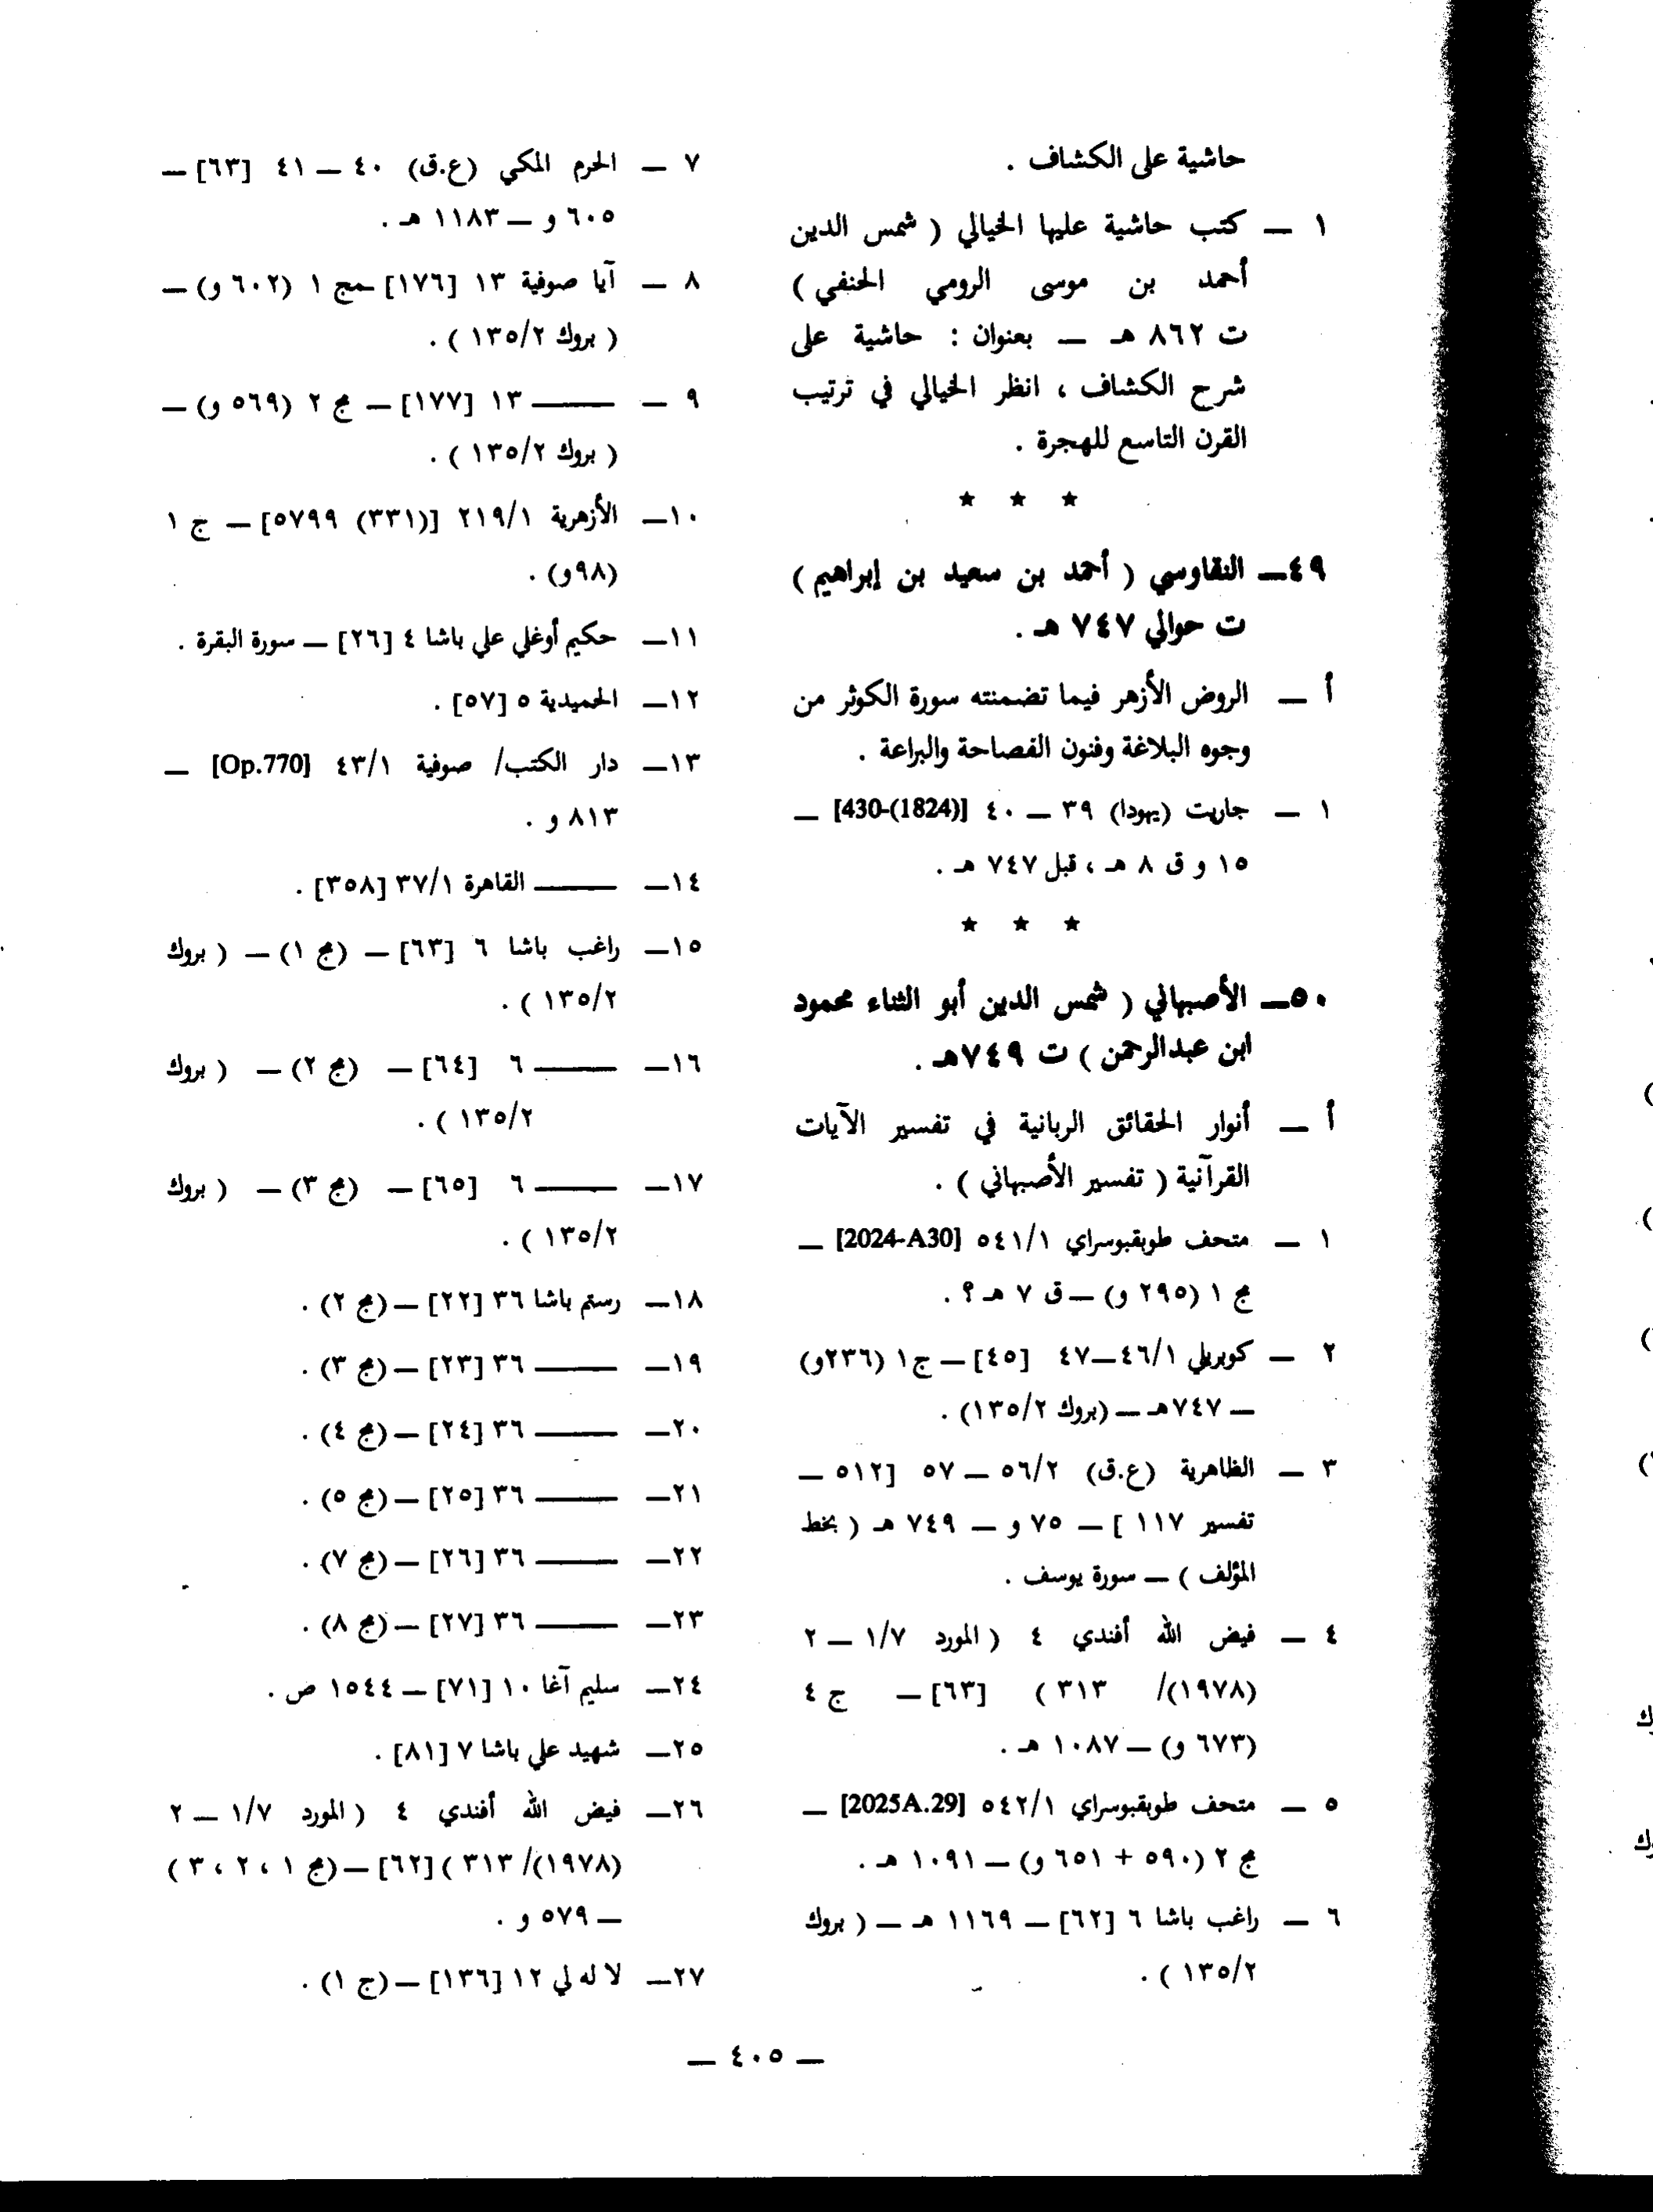 حاشية على الكشاف .
١ — كتب حاشية عليها الخيالي ( شمس الدين
أحمد بن موسى الرومي الحنفي )
ت ٨٦٢ هـ — بعنوان : حاشية على
شرح الكشاف ، انظر الخيالي في ترتيب
القرن التاسع للهجرة .
★ ★ ★
٤٩— النقاوسي ( أحمد بن سعيد بن إبراهيم )
ت حوالي ٧٤٧ هـ .
أ — الروض الأزهر فيما تضمنته سورة الكوثر من
وجوه البلاغة وفنون الفصاحة والبراعة .
١ — جاريت (يهودا) ٣٩ — ٤٠ [430-(1824)] —
١٥ و ق ٨ هـ ، قبل ٧٤٧ هـ .
★ ★ ★
٥٠— الأصبهاني ( شمس الدين أبو الثناء محمود
ابن عبدالرحمن ) ت ٧٤٩هـ .
أ — أنوار الحقائق الربانية في تفسير الآيات
القرآنية ( تفسير الأصبهاني ) .
١ — متحف طوبقبوسراي ٥٤١/١ [2024-A30] —
مج ١ (٢٩٥ و) — ق ٧ هـ ؟ .
٢ — كوبريلي ٤٦/١—٤٧ [٤٥] — ج١ (٢٣٦و)
— ٧٤٧هـ — (بروك ١٣٥/٢) .
٣ — الظاهرية (ع.ق) ٥٦/٢ — ٥٧ [٥١٢ —
تفسير ١١٧ ] — ٧٥ و — ٧٤٩ هـ ( بخط
المؤلف ) — سورة يوسف .
٤ — فيض الله أفندي ٤ ( المورد ١/٧ — ٢
(١٩٧٨)/ ٣١٣ ) [٦٣] — ج ٤
(٦٧٣ و) — ١٠٨٧ هـ .
٥ — متحف طوبقبوسراي ٥٤٢/١ [2025A.29] —
مج ٢ (٥٩٠ + ٦٥١ و) — ١٠٩١ هـ .
٦ — راغب باشا ٦ [٦٢] — ١١٦٩ هـ — ( بروك
١٣٥/٢ ) .
٧ — الحرم المكي (ع.ق) ٤٠ — ٤١ [٦٣] —
٦٠٥ و — ١١٨٣ هـ .
٨ — آيا صوفية ١٣ [١٧٦] —مج ١ (٦٠٢ و) —
( بروك ١٣٥/٢ ) .
٩ — ——— ١٣ [١٧٧] — مج ٢ (٥٦٩ و) —
( بروك ١٣٥/٢ ) .
١٠— الأزهرية ٢١٩/١ [(٣٣١) ٥٧٩٩] — ج ١
(٩٨و) .
١١— حكيم أوغلي علي باشا ٤ [٢٦] — سورة البقرة .
١٢— الحميدية ٥ [٥٧] .
١٣— دار الكتب/ صوفية ٤٣/١ [Op.770] —
٨١٣ و .
١٤— ——— القاهرة ٣٧/١ [٣٥٨] .
١٥— راغب باشا ٦ [٦٣] — (مج ١) — ( بروك
١٣٥/٢ ) .
١٦— ——— ٦ [٦٤] — (مج ٢) — ( بروك
١٣٥/٢ ) .
١٧— ——— ٦ [٦٥] — (مج ٣) — ( بروك
١٣٥/٢ ) .
١٨— رستم باشا ٣٦ [٢٢] — (مج ٢) .
١٩— ——— ٣٦ [٢٣] — (مج ٣) .
٢٠— ——— ٣٦ [٢٤] — (مج ٤) .
٢١— ——— ٣٦ [٢٥] — (مج ٥) .
٢٢— ——— ٣٦ [٢٦] — (مج ٧) .
٢٣— ——— ٣٦ [٢٧] — (مج ٨) .
٢٤— سليم آغا ١٠ [٧١] — ١٥٤٤ ص .
٢٥— شهيد علي باشا ٧ [٨١] .
٢٦— فيض الله أفندي ٤ ( المورد ١/٧ — ٢
(١٩٧٨)/ ٣١٣ ) [٦٢] — (مج ١ ، ٢ ، ٣ )
— ٥٧٩ و .
٢٧— لا له لي ١٢ [١٣٦] — (ج ١) .
— ٤٠٥ —